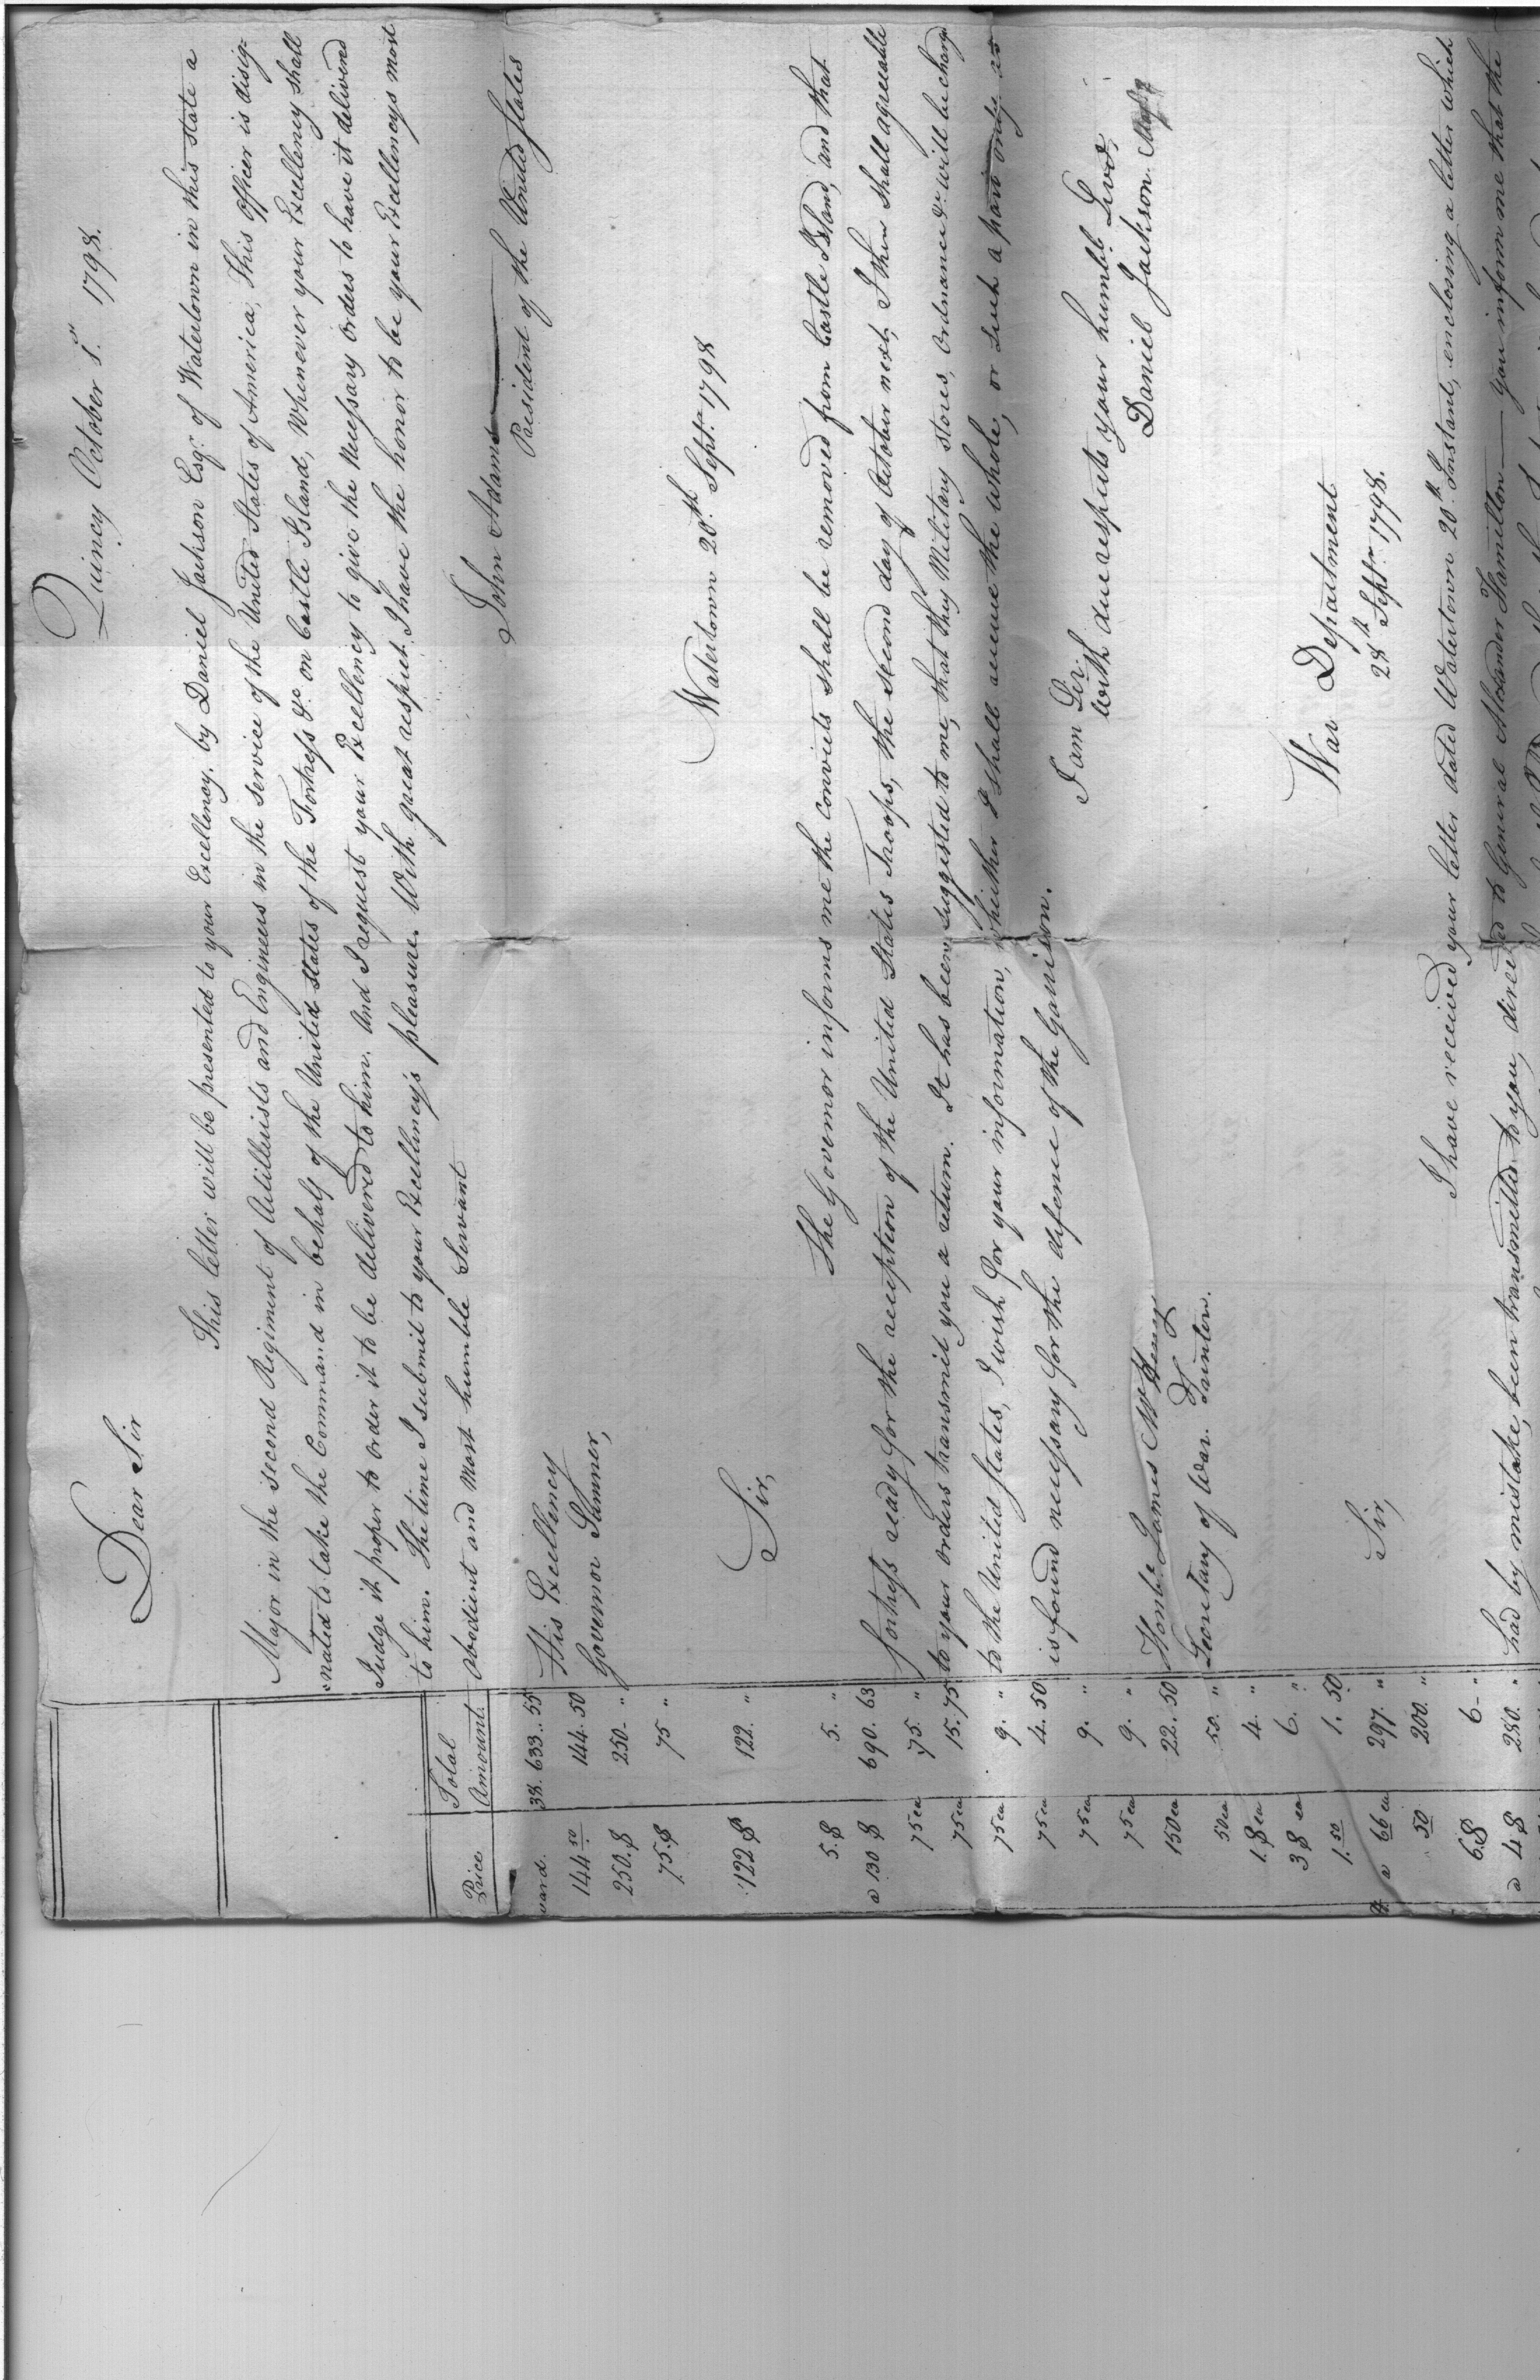 Quincy October 1.st 1798.
Dear Sir
This letter will be presented to your Excellency, by Daniel Jackson Esqr. of Watertown in this state a
Major in the second Regiment of Artillerists and Engineers in the service of the United States of America, This officer is disig-
nated to take the Command in behalf of the United States of the Fortress &c on Castle Island, Whenever your Excellency shall
Judge it proper to order it to be delivered to him. And I request your Excellency to give the necessary orders to have it delivered
to him. The time I submit to your Excellency's pleasure. With great respect I have the honor to be your Excellencys most
obedient and most humble Servant
John Adams
President of the United States
His Excellency
Governor Sumner,
Watertown 20th Septr. 1798
Sir,
The Governor informs me the convicts shall be removed from Castle Island, and that
fortress ready for the reception of the United States Troops, the second day of October next, I then shall agreeable
to your orders transmit you a return. It has been suggested to me, that they Military stores, Ordnance &c. will be charged
to the United States, I wish for your information, whether I shall receive the whole, or such a part only as
is found necessary for the defence of the Garrison.
I am Sir,
with due respects your humbl. Servt.
Daniel Jackson. Majr
Honble. James McHenry
Secretary of War. Trinton.
War Department
28th Septr. 1798.
Sir,
I have received your letter dated Watertown 20th. Instant, enclosing a letter which
had by mistake, been transmitted to you, directed to General Alexander Hamilton — you inform me that the
Price Total Amount
yard. 38.633..55
144 50 144.50
250.$ 250- "
75.$ 75 "
122 $ 122. "
5.$ 5. "
a 130 $ 690.63
75 ea 75. "
75 ea 15.75
75 ea 9. "
75 ea 4.50
75 ea 9. "
75 ea 9. "
150 ea 22.50
50 ea 50. "
1.$ ea 4. "
3 $ ea 6. "
1.50 1.50
a 66 ea 297. "
50 200. "
6.$ 6- "
a 4 $ 280. "